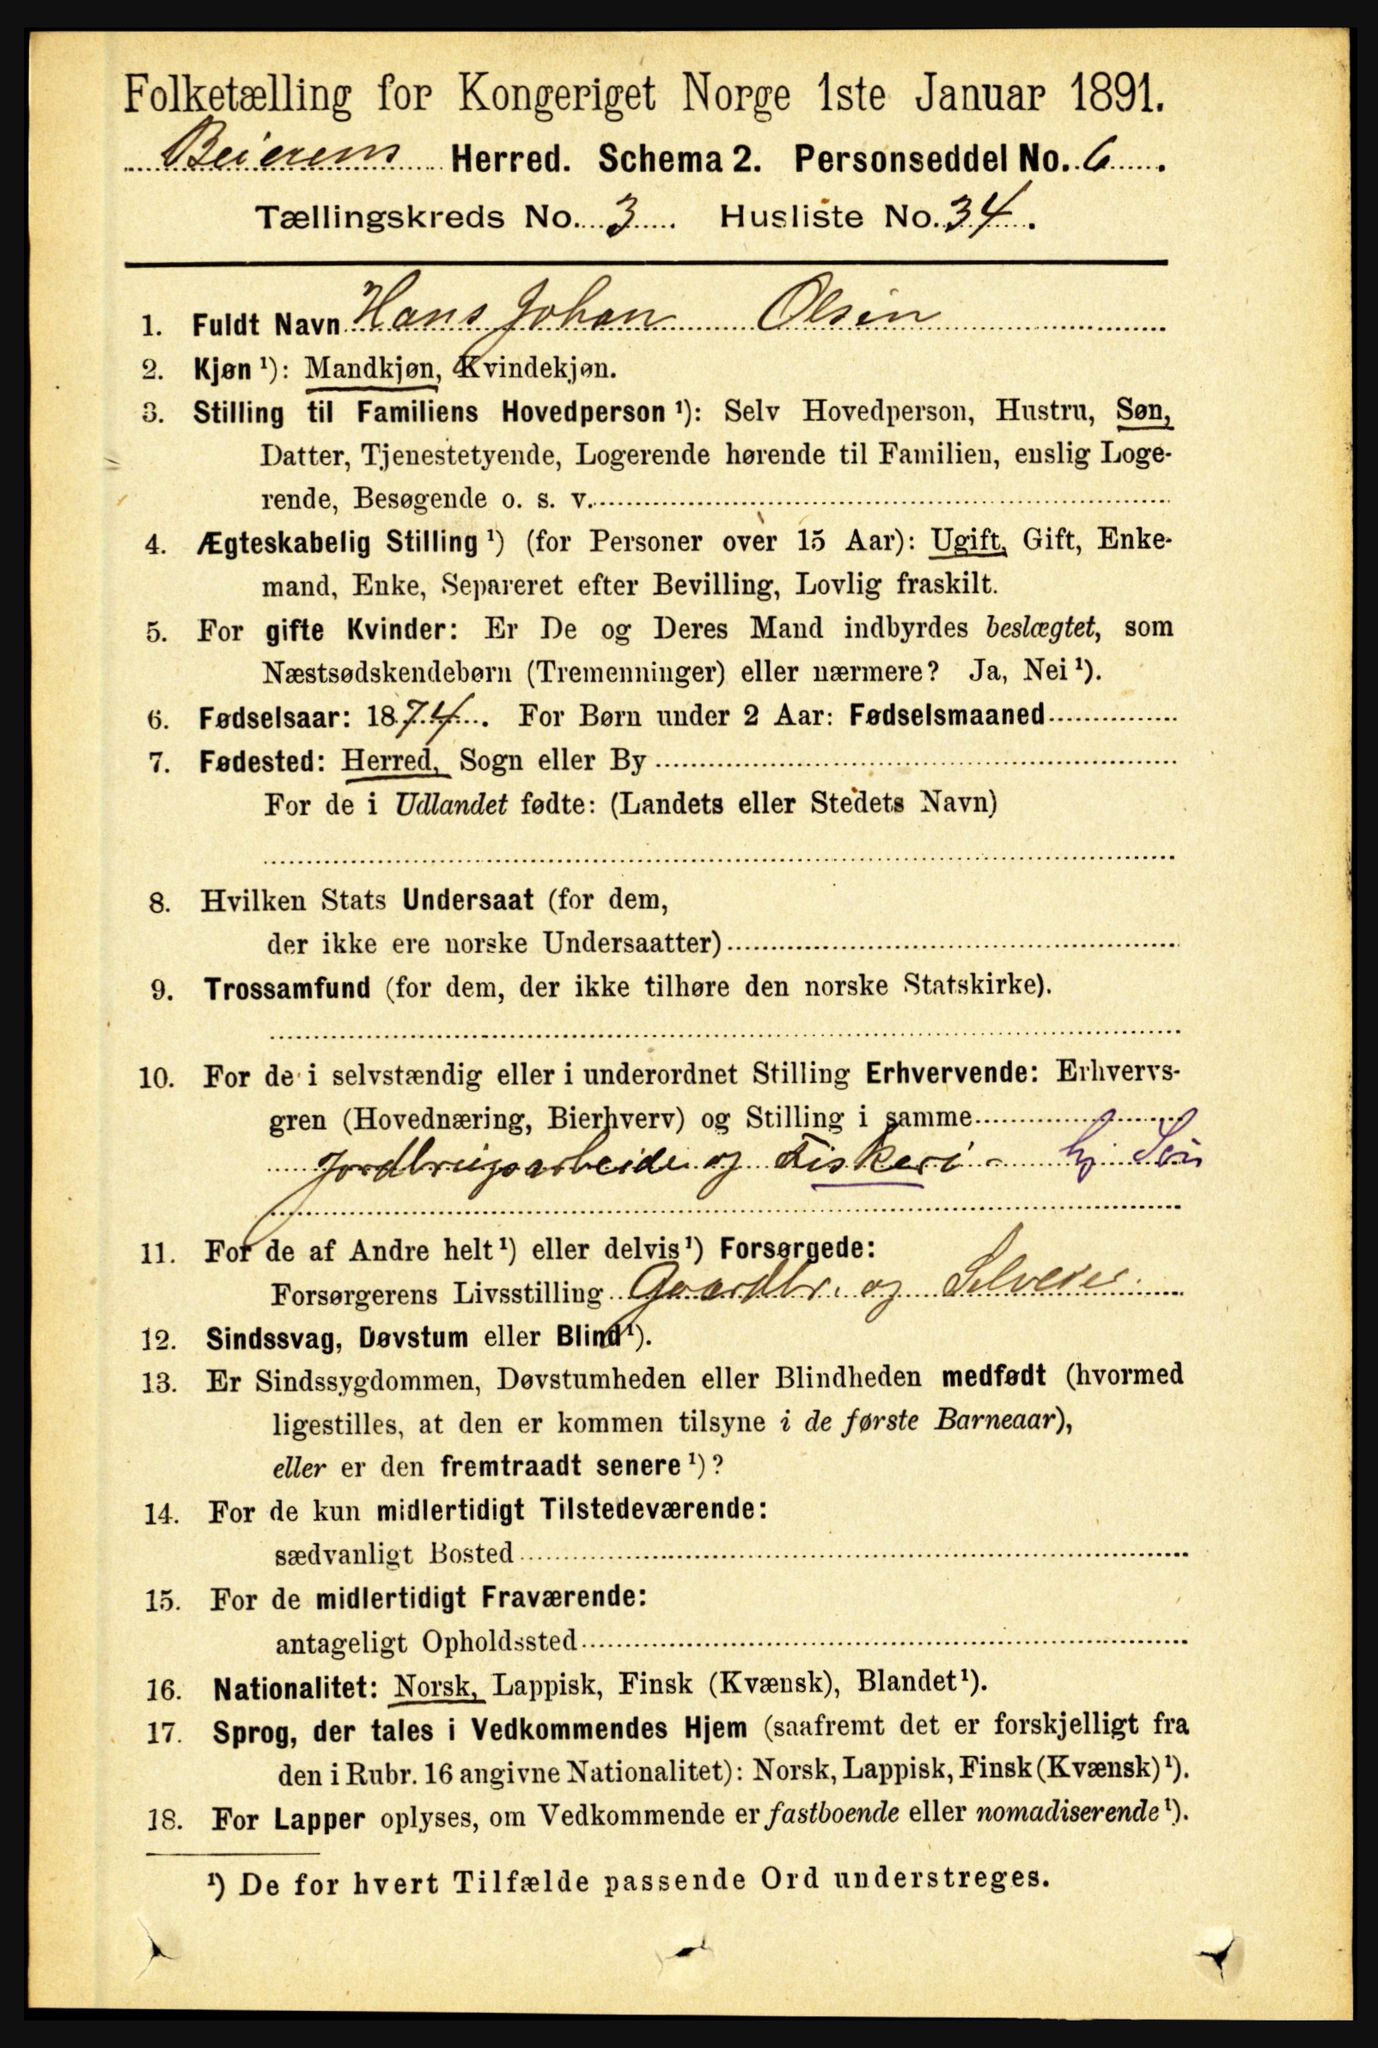 Folketælling for Kongeriget Norge 1ste Januar 1891.
Beierens Herred. Schema 2. Personseddel No. 6.
Tællingskreds No. 3. Husliste No. 34.
1. Fuldt Navn Hans Johan Olsen
2. Kjøn ¹): Mandkjøn, Kvindekjøn.
3. Stilling til Familiens Hovedperson ¹): Selv Hovedperson, Hustru, Søn,
Datter, Tjenestetyende, Logerende hørende til Familien, enslig Loge-
rende, Besøgende o. s. v.
4. Ægteskabelig Stilling ¹) (for Personer over 15 Aar): Ugift, Gift, Enke-
mand, Enke, Separeret efter Bevilling, Lovlig fraskilt.
5. For gifte Kvinder: Er De og Deres Mand indbyrdes beslægtet, som
Næstsødskendebørn (Tremenninger) eller nærmere? Ja, Nei ¹).
6. Fødselsaar: 1874. For Børn under 2 Aar: Fødselsmaaned
7. Fødested: Herred, Sogn eller By
For de i Udlandet fødte: (Landets eller Stedets Navn)
8. Hvilken Stats Undersaat (for dem,
der ikke ere norske Undersaatter)
9. Trossamfund (for dem, der ikke tilhøre den norske Statskirke).
10. For de i selvstændig eller i underordnet Stilling Erhvervende: Erhvervs-
gren (Hovednæring, Bierhverv) og Stilling i samme
Jordbrugsarbeide og Fiskeri - hj. Søn
11. For de af Andre helt ¹) eller delvis ¹) Forsørgede:
Forsørgerens Livsstilling Gaardbr. og Selveier
12. Sindssvag, Døvstum eller Blind ¹).
13. Er Sindssygdommen, Døvstumheden eller Blindheden medfødt (hvormed
ligestilles, at den er kommen tilsyne i de første Barneaar),
eller er den fremtraadt senere ¹)?
14. For de kun midlertidigt Tilstedeværende:
sædvanligt Bosted
15. For de midlertidigt Fraværende:
antageligt Opholdssted
16. Nationalitet: Norsk, Lappisk, Finsk (Kvænsk), Blandet ¹).
17. Sprog, der tales i Vedkommendes Hjem (saafremt det er forskjelligt fra
den i Rubr. 16 angivne Nationalitet): Norsk, Lappisk, Finsk (Kvænsk) ¹).
18. For Lapper oplyses, om Vedkommende er fastboende eller nomadiserende ¹).
¹) De for hvert Tilfælde passende Ord understreges.